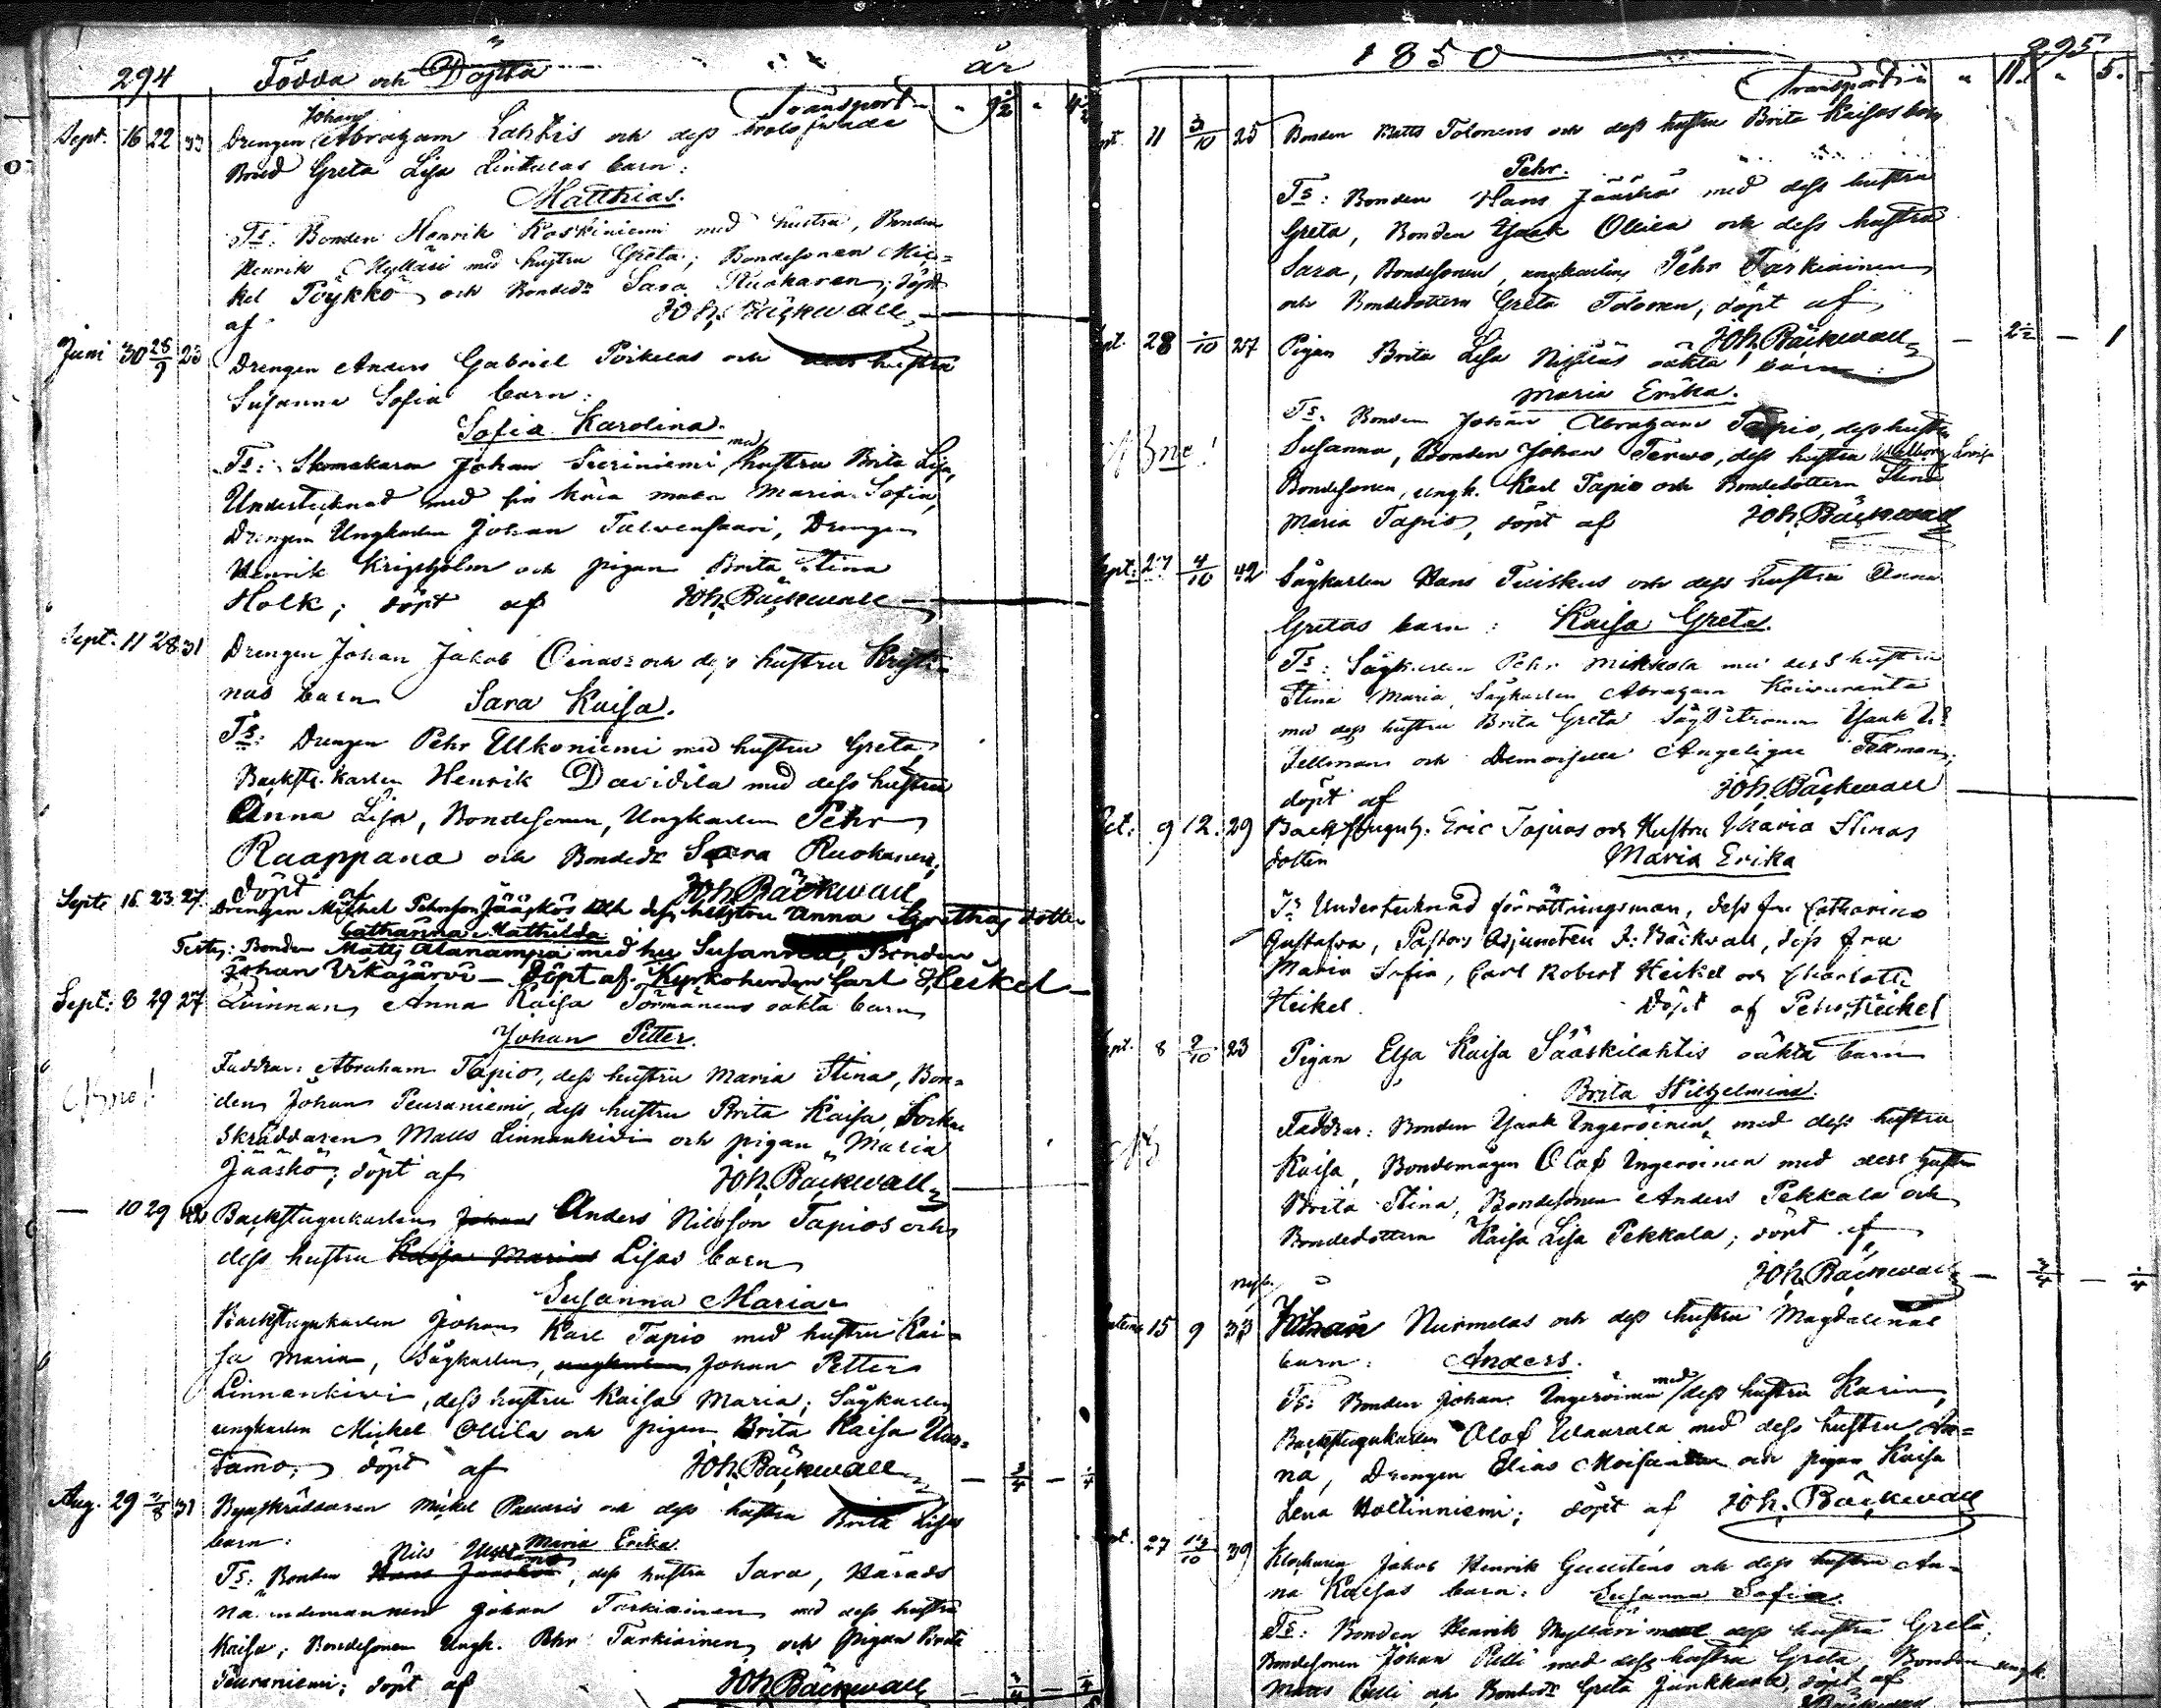 294 Födda och Döpta år
Transport " 9½ " 4½
Johan
Sept. 16 22 33 Drengen Abraham Lahtis och dess trolofvade
Brud Greta Lisa Lintulas barn:
Matthias.
Ts: Bonden Henrik Koskiniemi med hustru, Bonden
Henrik Mylläri med hustru Greta; Bondesonen Mic=
kel Pöykkö och Bonded: Sara Ruokanen; döpt
af Joh. Bäckwall
Juni 30 28/9 23 Drengen Anders Gabriel Poikelas och dess hustru
Susanna Sofia barn:
Sofia Karolina.
Ts: Skomakaren Johan Sieriniemi med hustru Brita Lisa,
Undertecknad med sin kära maka Maria Sofia,
Drengen Ungkarlen Johan Talwensaari, Drengen
Henrik Kripsholm och pigan Brita Stina
Holk; döpt af Joh. Bäckwall
Sept. 11 28 31 Drengen Johan Jakob Oinas och dess hustru Kristi=
nas barn Sara Kaisa.
Ts: Drengen Pehr Ulkoniemi med hustru Greta,
Backst. karlen Henrik Davidila med dess hustru
Anna Lisa, Bondesonen, Ungkarlen Pehr
Raappana och Bonded: Saara Ruokanen;
döpt af Joh. Bäckwall
Septe 16 23 27 Drengen Michel Pehrsson Jääskös och dess hustru Anna Grethas dotter
Catharina Mathilda
Testes: Bonden Matts Alanampa med hu Susanna, Bonden
Johan Wikajärvi – Döpt af Kyrkoherden Carl Heikel
Sept. 8 29 27 Qvinnans Anna Kaisa Törmänens oäkta barn
Johan Petter.
Faddrar: Abraham Tapio, dess hustru Maria Stina, Bon=
den Johan Peuraniemi, dess hustru Brita Kaisa, Socken
Skräddaren Matts Linnankivi och pigan Maria
Jääskö; döpt af Joh. Bäckwall
— 10 29 Backstugukarlen Johan Anders Nilsson Tapios och
dess hustru Kaisa Marias Lisas barn
Susanna Maria
Backstugukarlen Johan Karl Tapio med hustru Kai=
sa Maria, Sågkarlen, ungkarlen Johan Petter
Linnankivi, dess hustru Kaisa Maria; Sågkarlen
ungkarlen Mickel Ollila och pigan Brita Kaisa Uur=
tamo; döpt af Joh. Bäckwall — 3/4 — 1/4
Aug. 29 31 Byaskräddaren Mickel Paavaris och dess hustru Brita Lisas
barn: Maria Erika
Nils
Ts: Bonden Hans Jääskö, dess hustru Sara, Härads
nämndemannen Johan Tarkiainen med dess hustru
Kaisa; Bondesonen Ungk. Pehr Tarkiainen och pigan Brita
Peuraniemi; döpt af Joh. Bäckwall — 3/4 — 1/4
1850 295
Transport " 11. " 5.
pt. 11 3/10 25 Bonden Matts Tolonens och dess hustru Brita Kaisas barn
Pehr.
Ts: Bonden Hans Jääskö med dess hustru
Greta, Bonden Isak Ollila och dess hustru
Sara, Bondesonen, ungkarlen Pehr Tarkiainen
och Bondedottern Greta Tolonen, döpt af
Joh. Bäckwall
pt. 28 /10 27 Pigan Brita Lisa Niskas oäkta barn: — 2½ — 1
Maria Erika.
Ts: Bonden Johan Abraham Tapio, dess hustru
Susanna, Bonden Johan Terwo, dess hustru Lovisa
Bondesonen, ungk. Karl Tapio och Bondedottern Stina
Maria Tapio, döpt af Joh. Bäckwall
Sept: 27 4/10 42 Sågkarlen Hans Tuiskus och dess hustru Anna
Gretas barn: Kaisa Greta.
Ts: Sågkarlen Pehr Mikkola med dess hustru
Stina Maria, Sågkarlen Abraham Koivuranta
med dess hustru Brita Greta Isak
Fellman och Demoiselle Angelique Fellman;
döpt af Joh. Bäckwall
Oct: 9 12. 29 Backstuguh. Eric Tapios och Hustru Maria Stinas
dotter Maria Erika
Ts Undertecknad förrättningsman, dess fru Catharina
Gustafva, Pastors Adjuncten J: Bäckwall, dess fru
Maria Sofia, Carl Robert Heikel och Charlotte
Heikel. Döpt af Pehr Heikel
pt. 8 2/10 23 Pigan Elsa Kaisa Sääskilahtis oäkta barn
Brita Wilhelmina.
Faddrar: Bonden Isak Ungeroinen med dess hustru
Kaisa, Bondemågen Olof Ungeroinen med dess hustru
Brita Stina, Bondesonen Anders Pekkala och
Bondedottern Kaisa Lisa Pekkala; döpt af
Joh. Bäckwall — 3/4 — 1/4
Nyb.
15 9 33 Johan Nurmelas och dess hustru Magdalenas
barn: Anders.
Ts: Bonden Johan Ungeroinen med dess hustru Karin,
Backstugukarlen Olof Waarala med dess hustru An=
na, Drengen Elias Moisanen och pigan Kaisa
Lena Holtinniemi; döpt af Joh. Bäckwall
pt. 27 13/10 39 Klockaren Jakob Henrik Gustens och dess hustru An=
na Kaisas barn: Susanna Sofia.
Ts: Bonden Henrik Mylläri med dess hustru Greta,
Bondesonen Johan Pelli med dess hustru Greta, Bonden ungk.
Matts Pelli och Bonded: Greta Junkkara, döpt af
Bäckwall